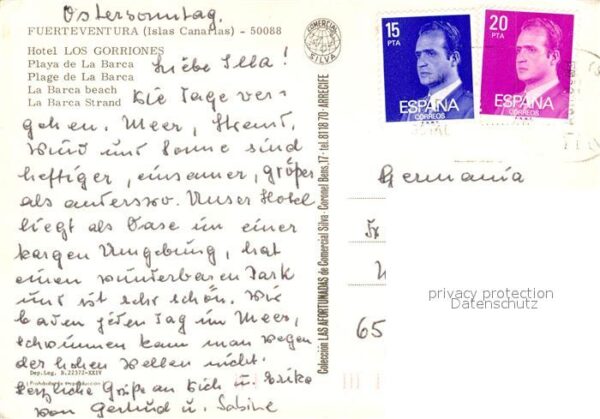 Ostersonntag.
FUERTEVENTURA (Islas Canarias) - 50088
Hotel LOS GORRIONES
Playa de La Barca
Plage de La Barca
La Barca beach
La Barca Strand
Liebe Illa!
Die Tage ver-
gehen. Meer, Strand,
Wind und Sonne sind
heftiger, einsamer, größer
als anderswo. Unser Hotel
liegt als Oase in einer
kargen Umgebung, hat
einen wunderbaren Park
und ist sehr schön. Wir
baden jeden Tag im Meer,
schwimmen kann man wegen
der hohen Wellen nicht.
Herzliche Grüße an Dich u. Erika
von Gertrud u. Sabine
Dep. Leg. B. 22372-XXIV
Prohibida la reproducción
COMERCIAL SILVA
Colección LAS AFORTUNADAS de Comercial Silva - Coronel Bens, 17 - tel. 81 18 70 ARRECIFE
15
PTA
ESPAÑA
CORREOS
20
PTA
ESPAÑA
CORREOS
Germania
65
privacy protection
Datenschutz